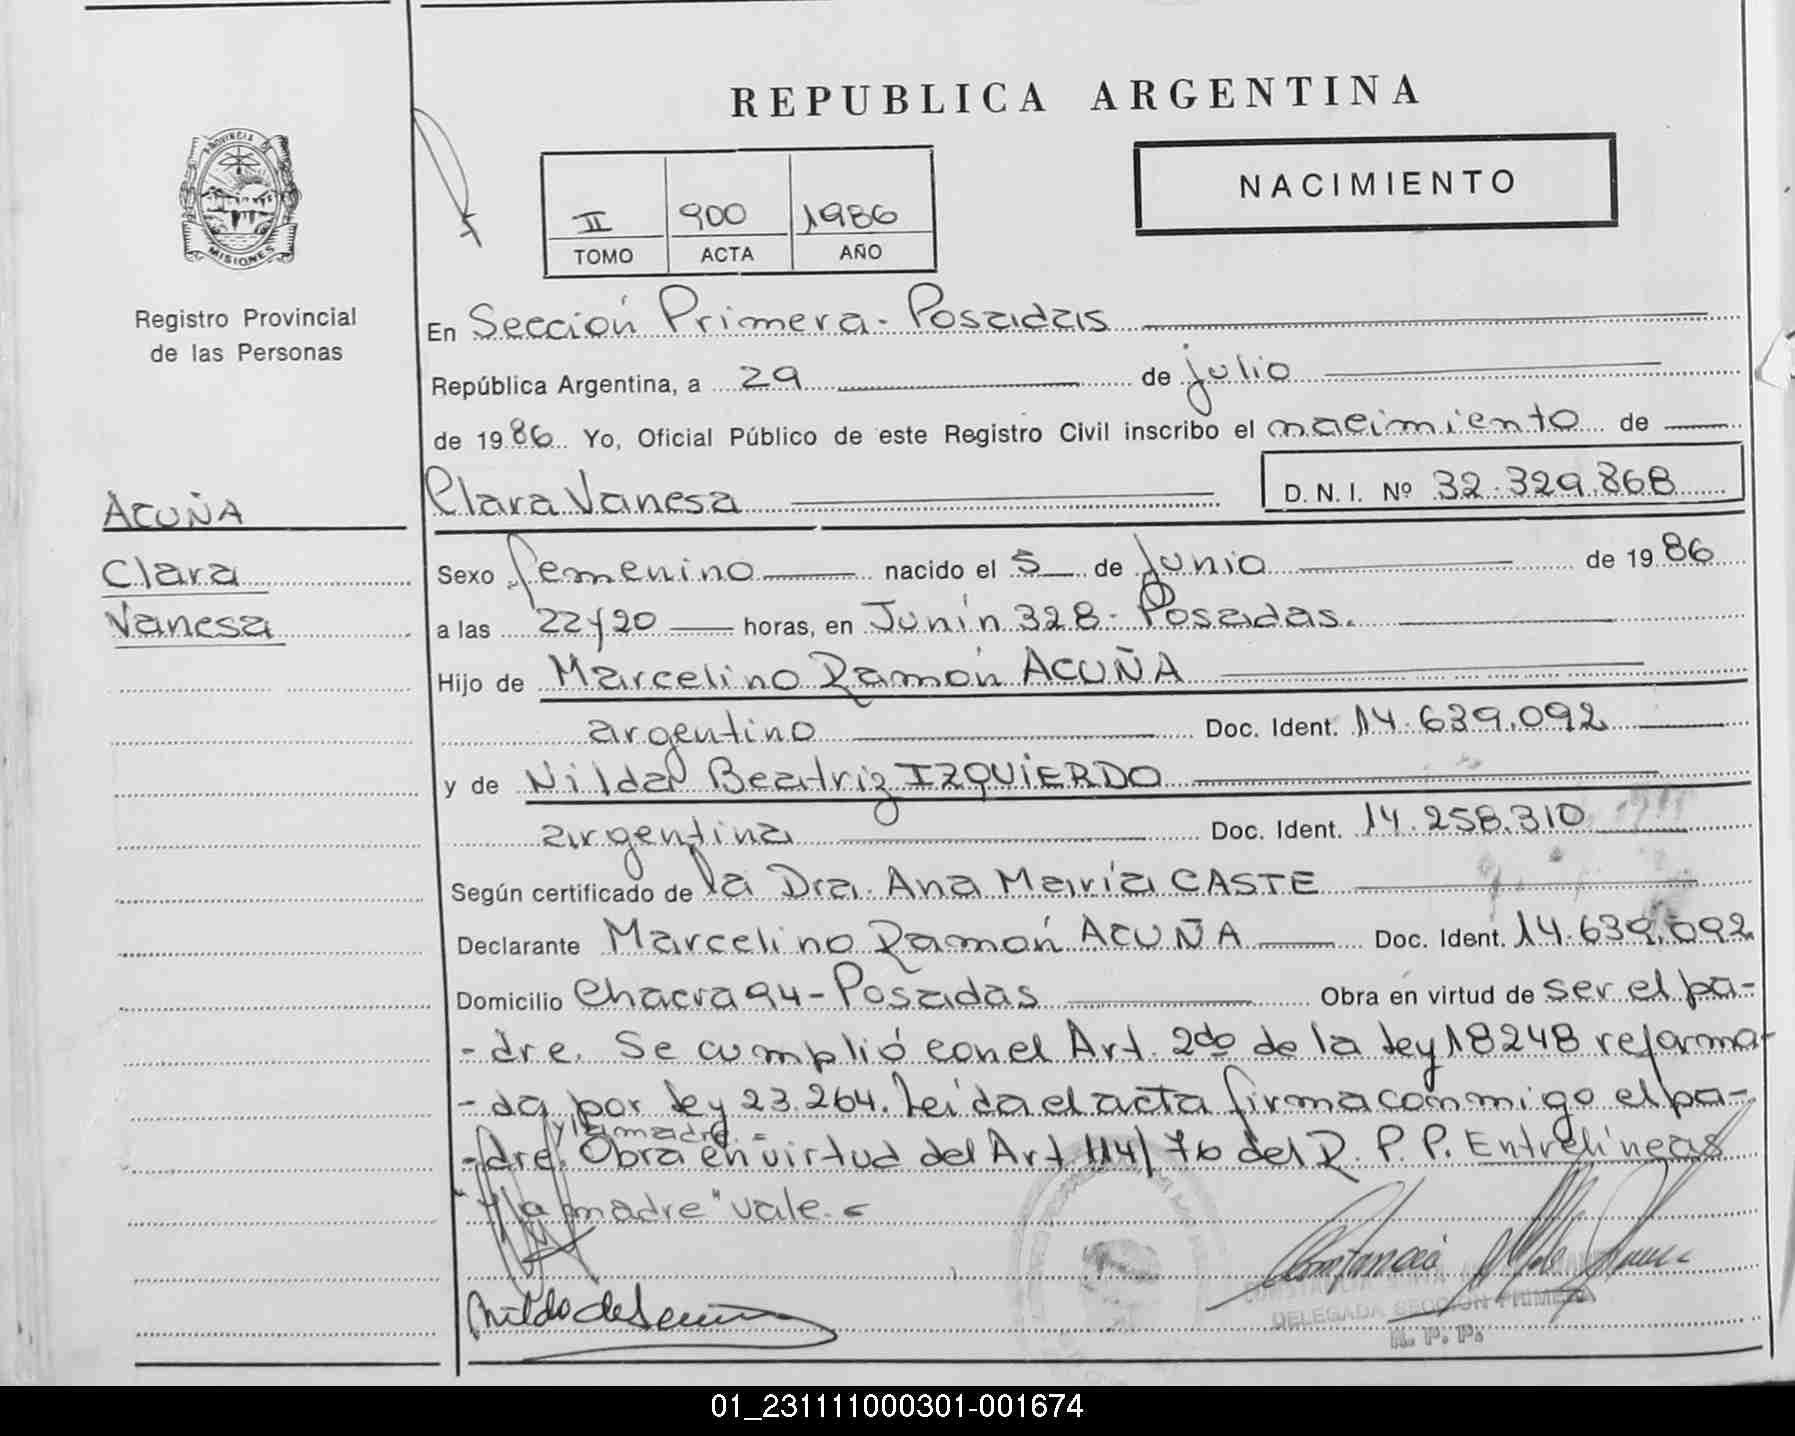 REPUBLICA ARGENTINA
NACIMIENTO
PROVINCIA DE
MISIONES
II 900 1986
TOMO ACTA AÑO
Registro Provincial
de las Personas
En Sección Primera - Posadas
República Argentina, a 29 de julio
de 1986 Yo, Oficial Público de este Registro Civil inscribo el nacimiento de
Clara Vanesa D. N. I. Nº 32.329.868
ACUÑA
Clara
Vanesa
Sexo femenino nacido el 5 de Junio de 1986
a las 22y20 horas, en Junín 328 - Posadas.
Hijo de Marcelino Ramón ACUÑA
argentino Doc. Ident. 14.639.092
y de Nilda Beatriz IZQUIERDO
argentina Doc. Ident. 14.258.310
Según certificado de la Dra. Ana María CASTE
Declarante Marcelino Ramón ACUÑA Doc. Ident. 14.639.092
Domicilio Chacra 94 - Posadas Obra en virtud de ser el pa-
-dre. Se cumplió con el Art. 2do de la ley 18248 reforma-
-da por ley 23.264. Leída el acta firma conmigo el pa-
y la madre. =
-dre. Obra en virtud del Art 114/76 del R. P. P. Entrelíneas
"y la madre" vale. =
DELEGADA SECCION PRIMERA
R. P. P.
01_231111000301-001674